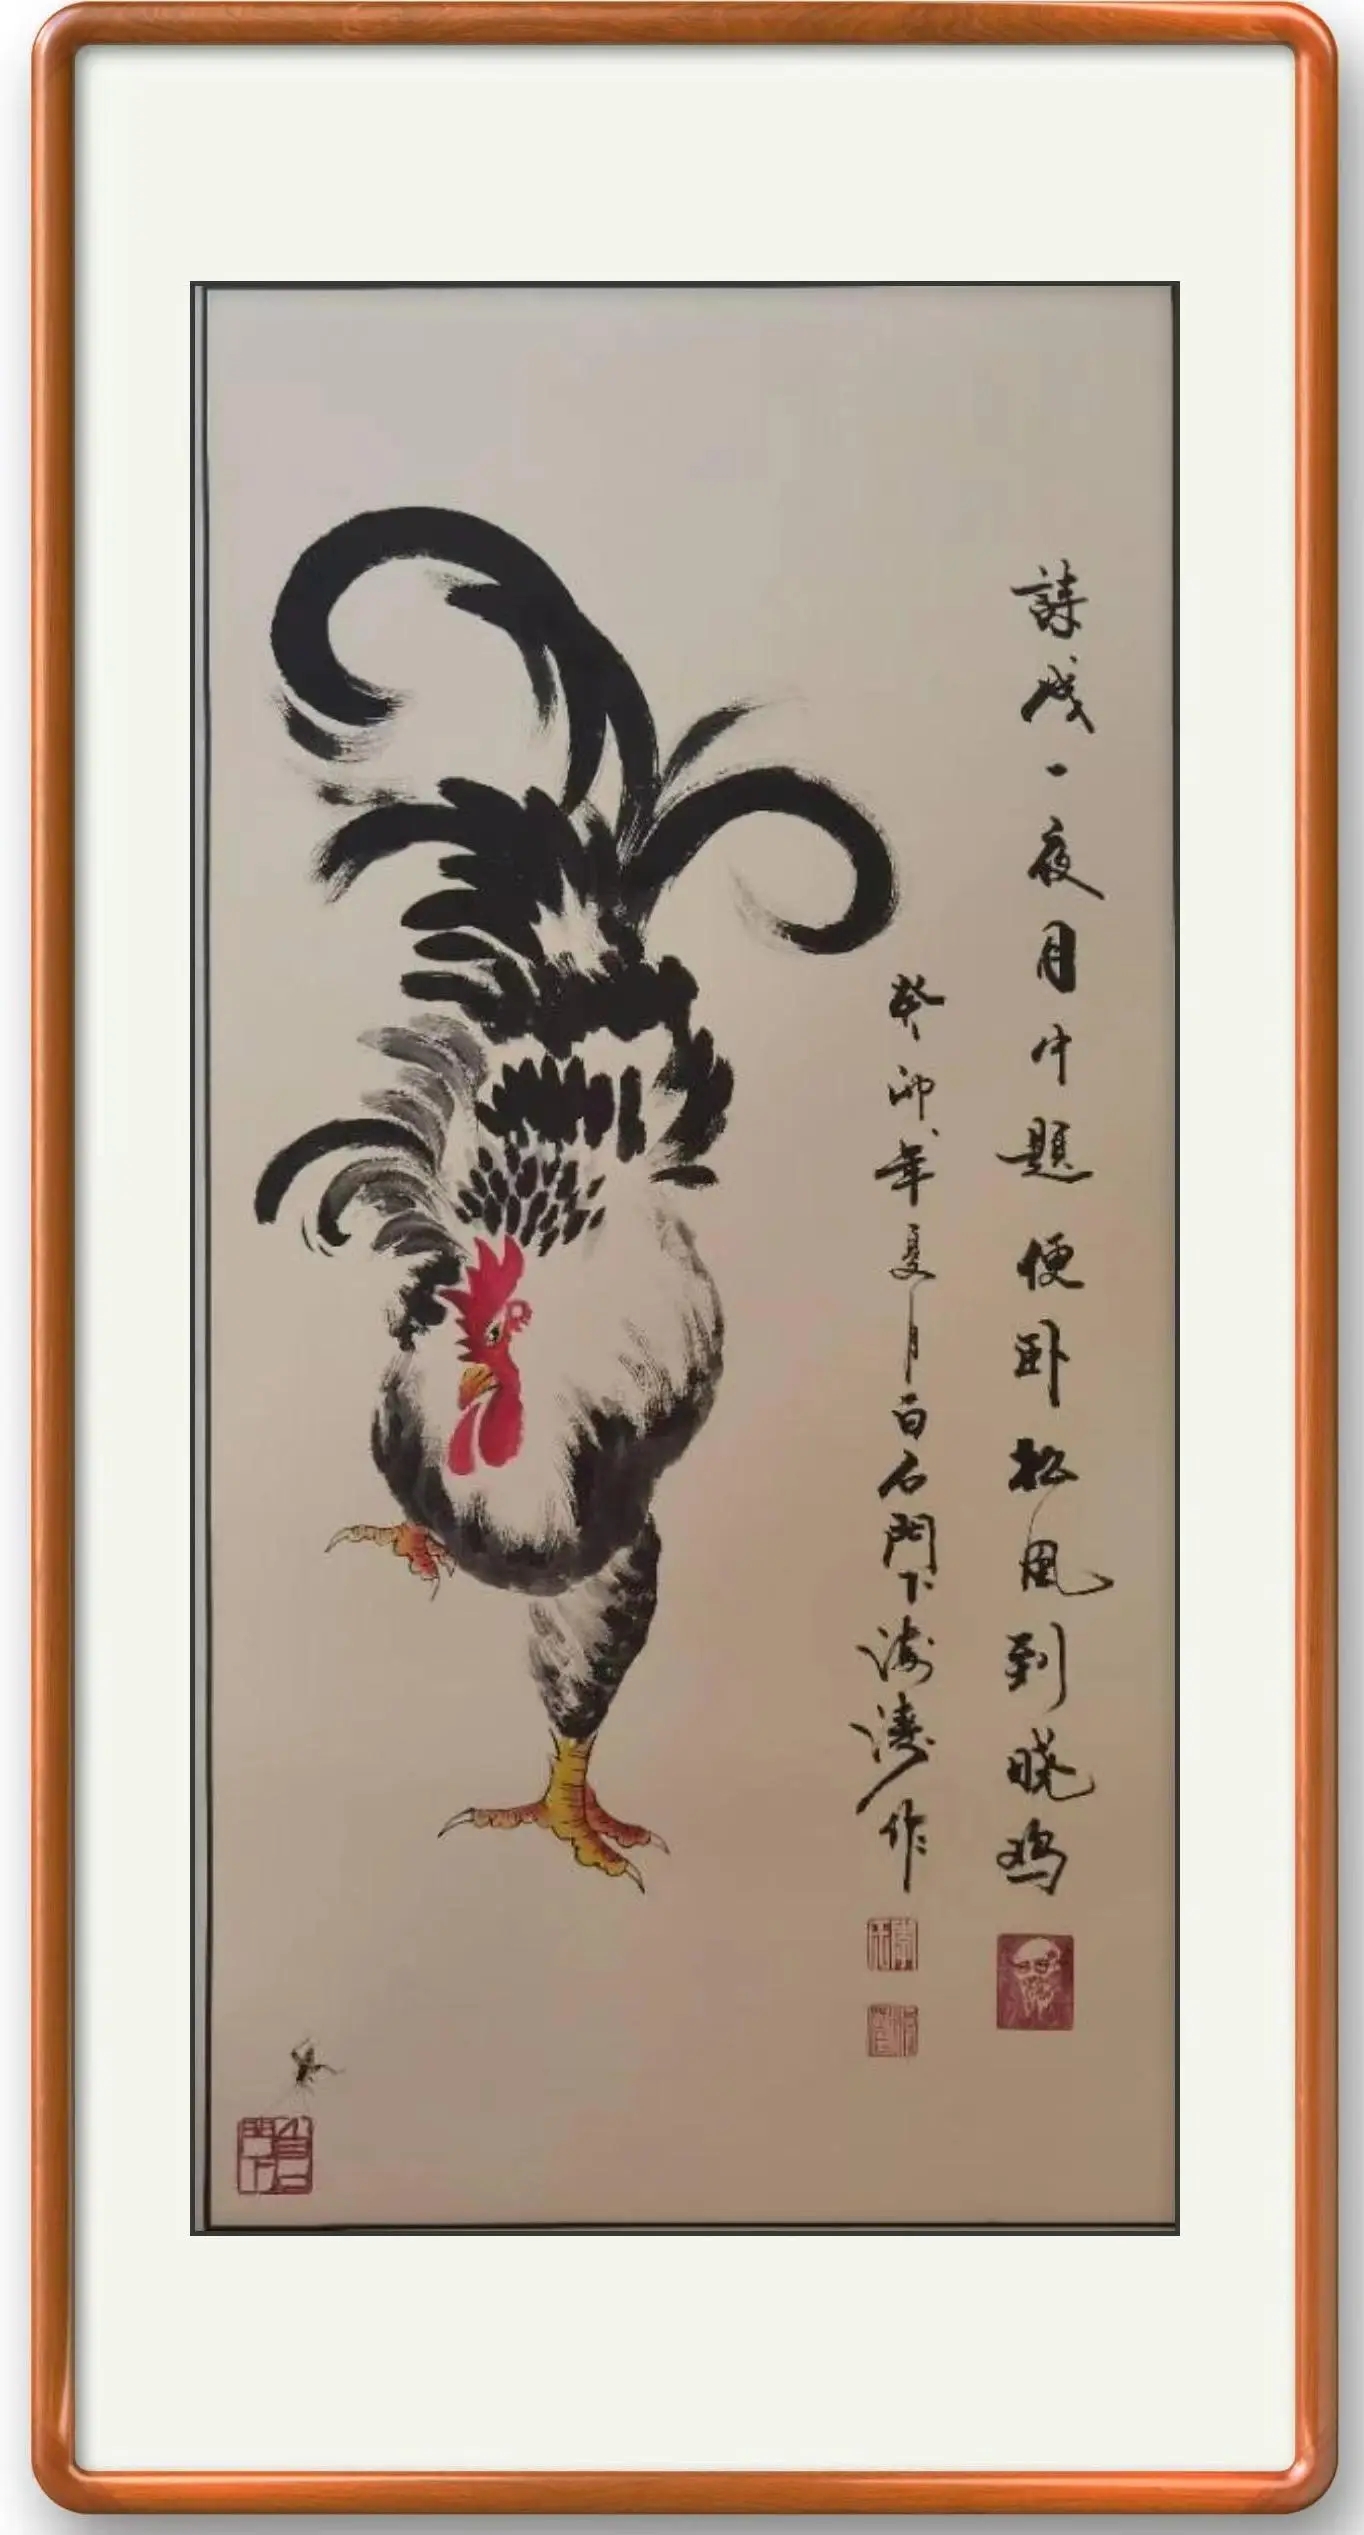 詩成一夜月中題便卧松風到曉鸡
癸卯年夏月白石門下海濤作
白石門下